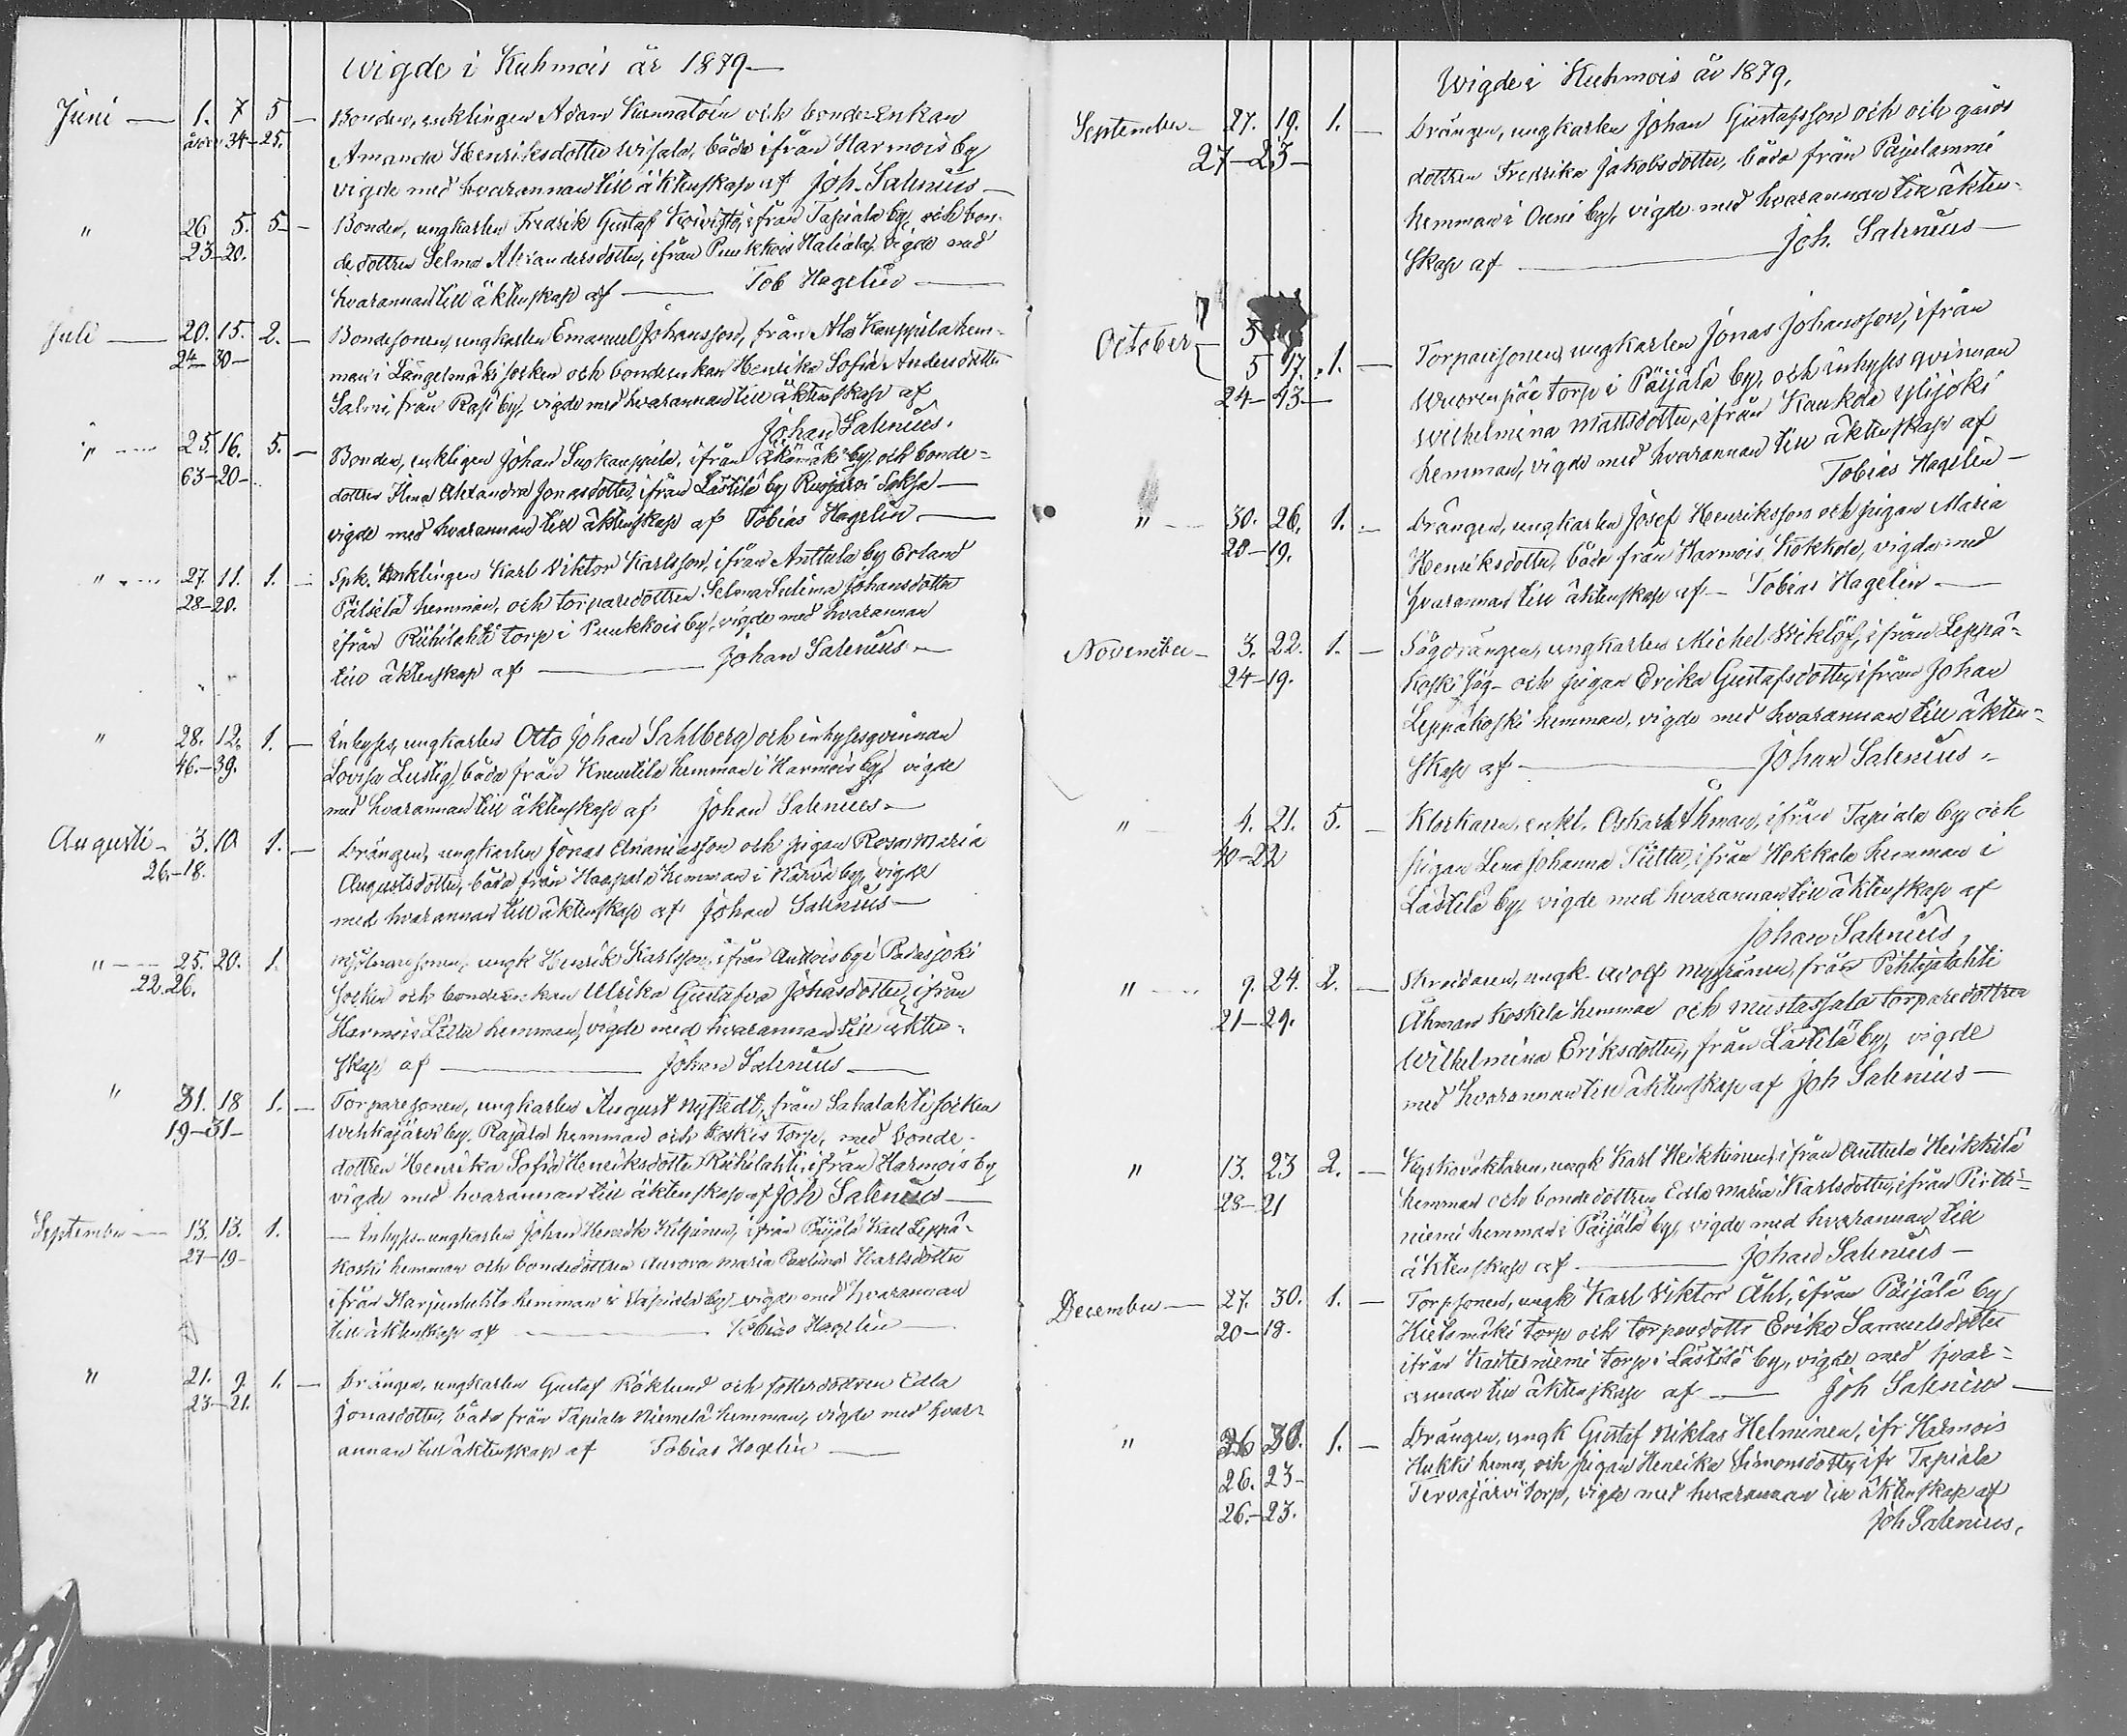 Wigde i Kuhmois år 1879
Juni 1. 7 5 Bonden, enklingen Adam Kunnatoin och bonde-Enkan
ålder 34-25. Amanda Henriksdotter Wisala, båda ifrån Harmois by
vigde med hvarannan till äktenskap af Joh. Salenius
" 26 5. 5 Bonden, ungkarlen Fredrik Gustaf Koivisto, ifrån Tapiala by, och bon-
23-20. dedottren Selma Alexandersdotter, ifrån Puukkois Haliala, vigde med
hvarannan till äktenskap af Tob Hagelin
Juli 20. 15. 2. Bondesonen, ungkarlen Emanuel Johansson, från Ala Kauppila hem-
24-30 man i Längelmäki socken och bondeenkan Henrika Sofia Andersdotter
Salmi, från Rasi by, vigde med hvarannan till äktenskap af
Johan Salenius.
" 25. 16. 5. Bonden, enklingen Johan Kauppila, ifrån by, och bonde-
63-20 dottren Ilma Alexandra Jonasdotter, ifrån Lästilä by
vigde med hvarannan till äktenskap af Tobias Hagelin
" 27. 11. 1. Spk. Enklingen Karl Viktor Karlsson, ifrån Anttula by Erland
28-20. Pälsilä hemman, och torparedottren Selma Johansdotter
ifrån Riihilahti torp i Puukkois by, vigde med hvarannan
till äktenskap af Johan Salenius
" 28. 12. 1. Inhyses, ungkarlen Otto Johan Sahlberg och inhysesqvinnan
46.-39. Lovisa Lustig, båda från Knuutila hemman i Harmois by, vigde
med hvarannan till äktenskap af Johan Salenius
Augusti 3. 10 1. Drängen, ungkarlen Jonas Ananiasson och pigan Rosa Maria
26.-18. Augustsdotter, båda från Haapala hemman i Närvä by, vigde
med hvarannan till äktenskap af Johan Salenius
" 25. 20. 1. Mjölnaresonen, ungk Henrik Karlsson, ifrån Auttois by i Padasjoki
22.26. socken och bondeenkan Ulrika Gustafva Johansdotter, ifrån
Harmois Lilla hemman, vigde med hvarannan till äkten-
skap af Johan Salenius
" 31. 18 1. Torparesonen, ungkarlen August Nystedt, från Sahalahti socken
19-31 Wehkajärvi by, Rajala hemman och Koskis torp, med bonde-
dottren Henrika Sofia Henriksdotter Riihilahti, ifrån Harmois by
vigde med hvarannan till äktenskap af Joh Salenius
September 13. 13. 1. Inhyses-ungkarlen Johan Henrik Kiljanen, ifrån Päijälä Karl Leppä-
27-19 koski hemman och bondedottren Aurora Maria Paulina Karlsdotter
ifrån Harjunlahti hemman i Tapiala by vigde med hvarannan
till äktenskap af Tobias Hagelin
" 21. 9. 1. Drängen, ungkarlen Gustaf Röklund och dottren Edla
23-21. Jonasdotter, båda från Tapiala Niemelä hemman, vigde med hvar-
annan till äktenskap af Tobias Hagelin
Wigde i Kuhmois år 1879.
September 27. 19. 1. Drängen, ungkarlen Johan Gustafsson och och gårds
27-23 dottren Fredrika Jakobsdotter, båda från Päijälammi
hemman i Ouni by, vigde med hvarannan till äkten-
skap af Joh. Salenius
October 5
5 17. 1. Torparesonen, ungkarlen Jonas Johansson, ifrån
24-43 Wuorenpää torp i Päijälä by, och inhyses qvinnan
Wilhelmina Mattsdotter, ifrån Kaukola Ylijoki
hemman, vigde med hvarannan till äktenskap af
Tobias Hagelin
" 30. 26. 1. Drängen, ungkarlen Josef Henriksson och pigan Maria
28-19. Henriksdotter, båda från Harmois Kokkola, vigde med
hvarannan till äktenskap af Tobias Hagelin
November 3. 22. 1. Sågdrängen, ungkarlen Michel Wiklöf, ifrån Leppä-
24-19. koski såg- och pigan Erika Gustafsdotter, ifrån Johan
Leppäkoski hemman, vigde med hvarannan till äkten-
skap af Johan Salenius
" 4. 21. 5. Klockaren, enkl. Oskar Åhman, ifrån Tapiala by och
40-22 pigan Lena Johanna, ifrån Hokkala hemman i
Lästilä by, vigde med hvarannan till äktenskap af
Johan Salenius,
" 9. 24. 2. Skräddaren, ungk. Adolf Nygränen, från
21-29. Åhman Koskela hemman och Mustassala torparedottren
Wilhelmina Eriksdotter, från Lästilä by, vigde
med hvarannan till äktenskap af Joh Salenius
" 13. 23 2. Kyrkoväktaren, ungk Karl Heikkinen, ifrån Anttula Heikkilä
28-21 hemman och bondedottren Edla Maria Karlsdotter, ifrån Pirtti-
niemi hemman i Päijälä by, vigde med hvarannan till
äktenskap af Johan Salenius
December 27. 30. 1. Torpsonen, ungk Karl Viktor Åhl, ifrån Päijälä by
20-18. Hietamäki torp och torparedottr Erika Samuelsdotter
ifrån Kaiterniemi torp i Lästilä by, vigde med hvar-
annan till äktenskap af Joh Salenius
" 26 30. 1. Drängen, ungk Gustaf Niklas Helminen, ifr Harmois
26. 23- Hukki heman, och pigan Henrika Simonsdotter, ifr Tapiala
26.-23. Tervajärvi torp, vigde med hvarannan till äktenskap af
Joh Salenius,